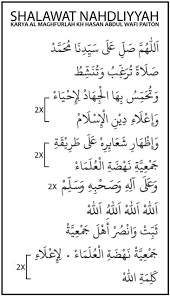 SHALAWAT NAHDLIYYAH
KARYA AL MAGHFURLAH KH HASAN ABDUL WAFI PAITON
اَللّٰهُمَّ صَلِّ عَلَى سَيِّدِنَا مُحَمَّدٍ
صَلَاةً تُرَغِّبُ وَتُنَشِّطُ
2X
وَتُحَمِّسُ بِهَا الْجِهَادَ لِإِحْيَاءِ
وَإِعْلَاءِ دِيْنِ الْإِسْلَامِ
2X
وَإِظْهَارِ شَعَايِرِهِ عَلَى طَرِيْقَةِ
جَمْعِيَّةِ نَهْضَةِ الْعُلَمَاءِ
2X وَعَلَى آلِهِ وَصَحْبِهِ وَسَلِّمْ
اَللهُ اَللهُ اَللهُ اَللهُ
ثَبِّتْ وَانْصُرْ أَهْلَ جَمْعِيَّةْ
2X
جَمْعِيَّةْ نَهْضَةِ الْعُلَمَاءِ . لِإِعْلَاءِ
كَلِمَةِ اللهِ